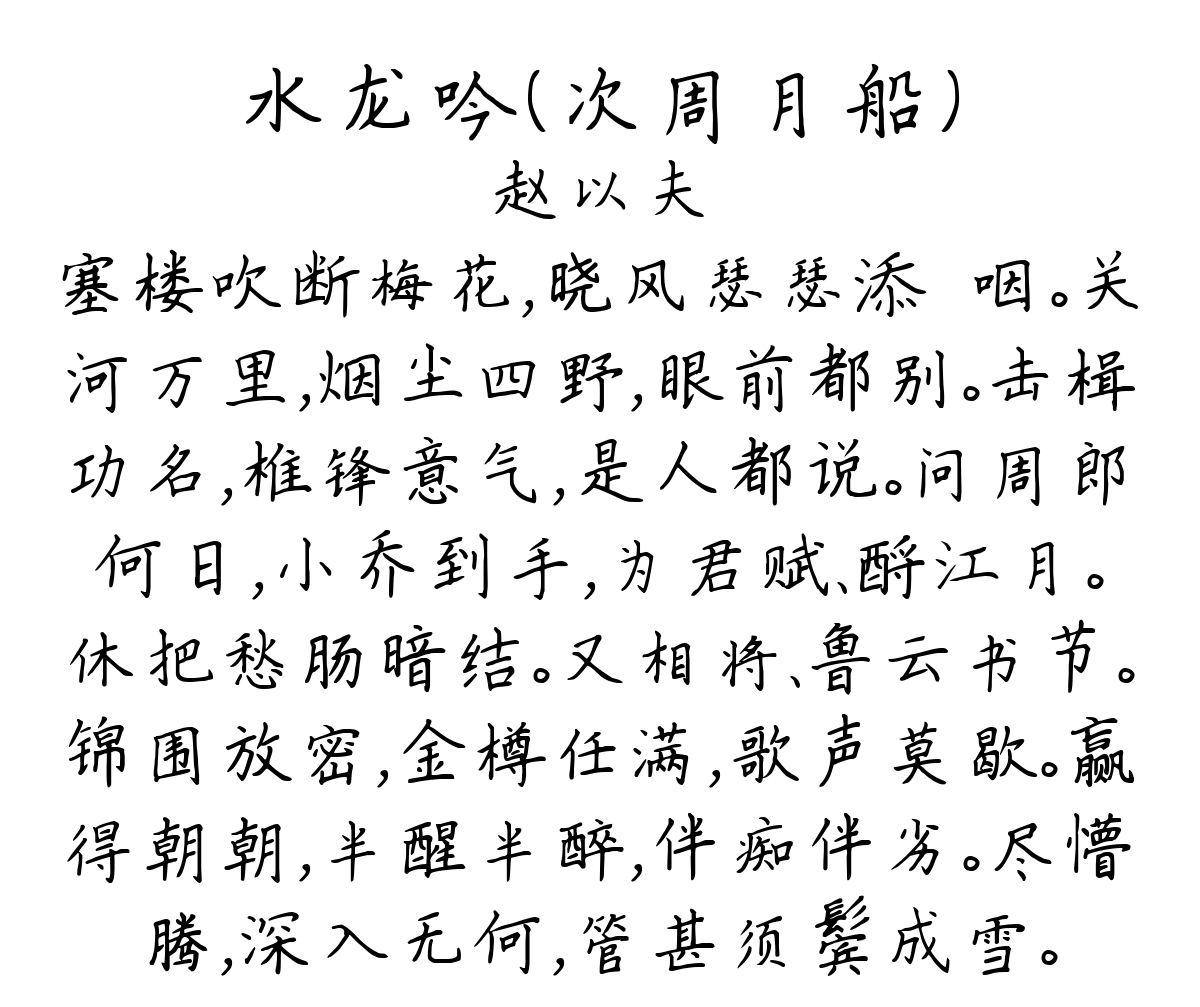 水龙吟(次周月船)
赵以夫
塞楼吹断梅花,晓风瑟瑟添 咽。关
河万里,烟尘四野,眼前都别。击楫
功名,椎锋意气,是人都说。问周郎
何日,小乔到手,为君赋、酹江月。
休把愁肠暗结。又相将、鲁云书节。
锦围放密,金樽任满,歌声莫歇。赢
得朝朝,半醒半醉,伴痴伴劣。尽懵
腾,深入无何,管甚须鬓成雪。